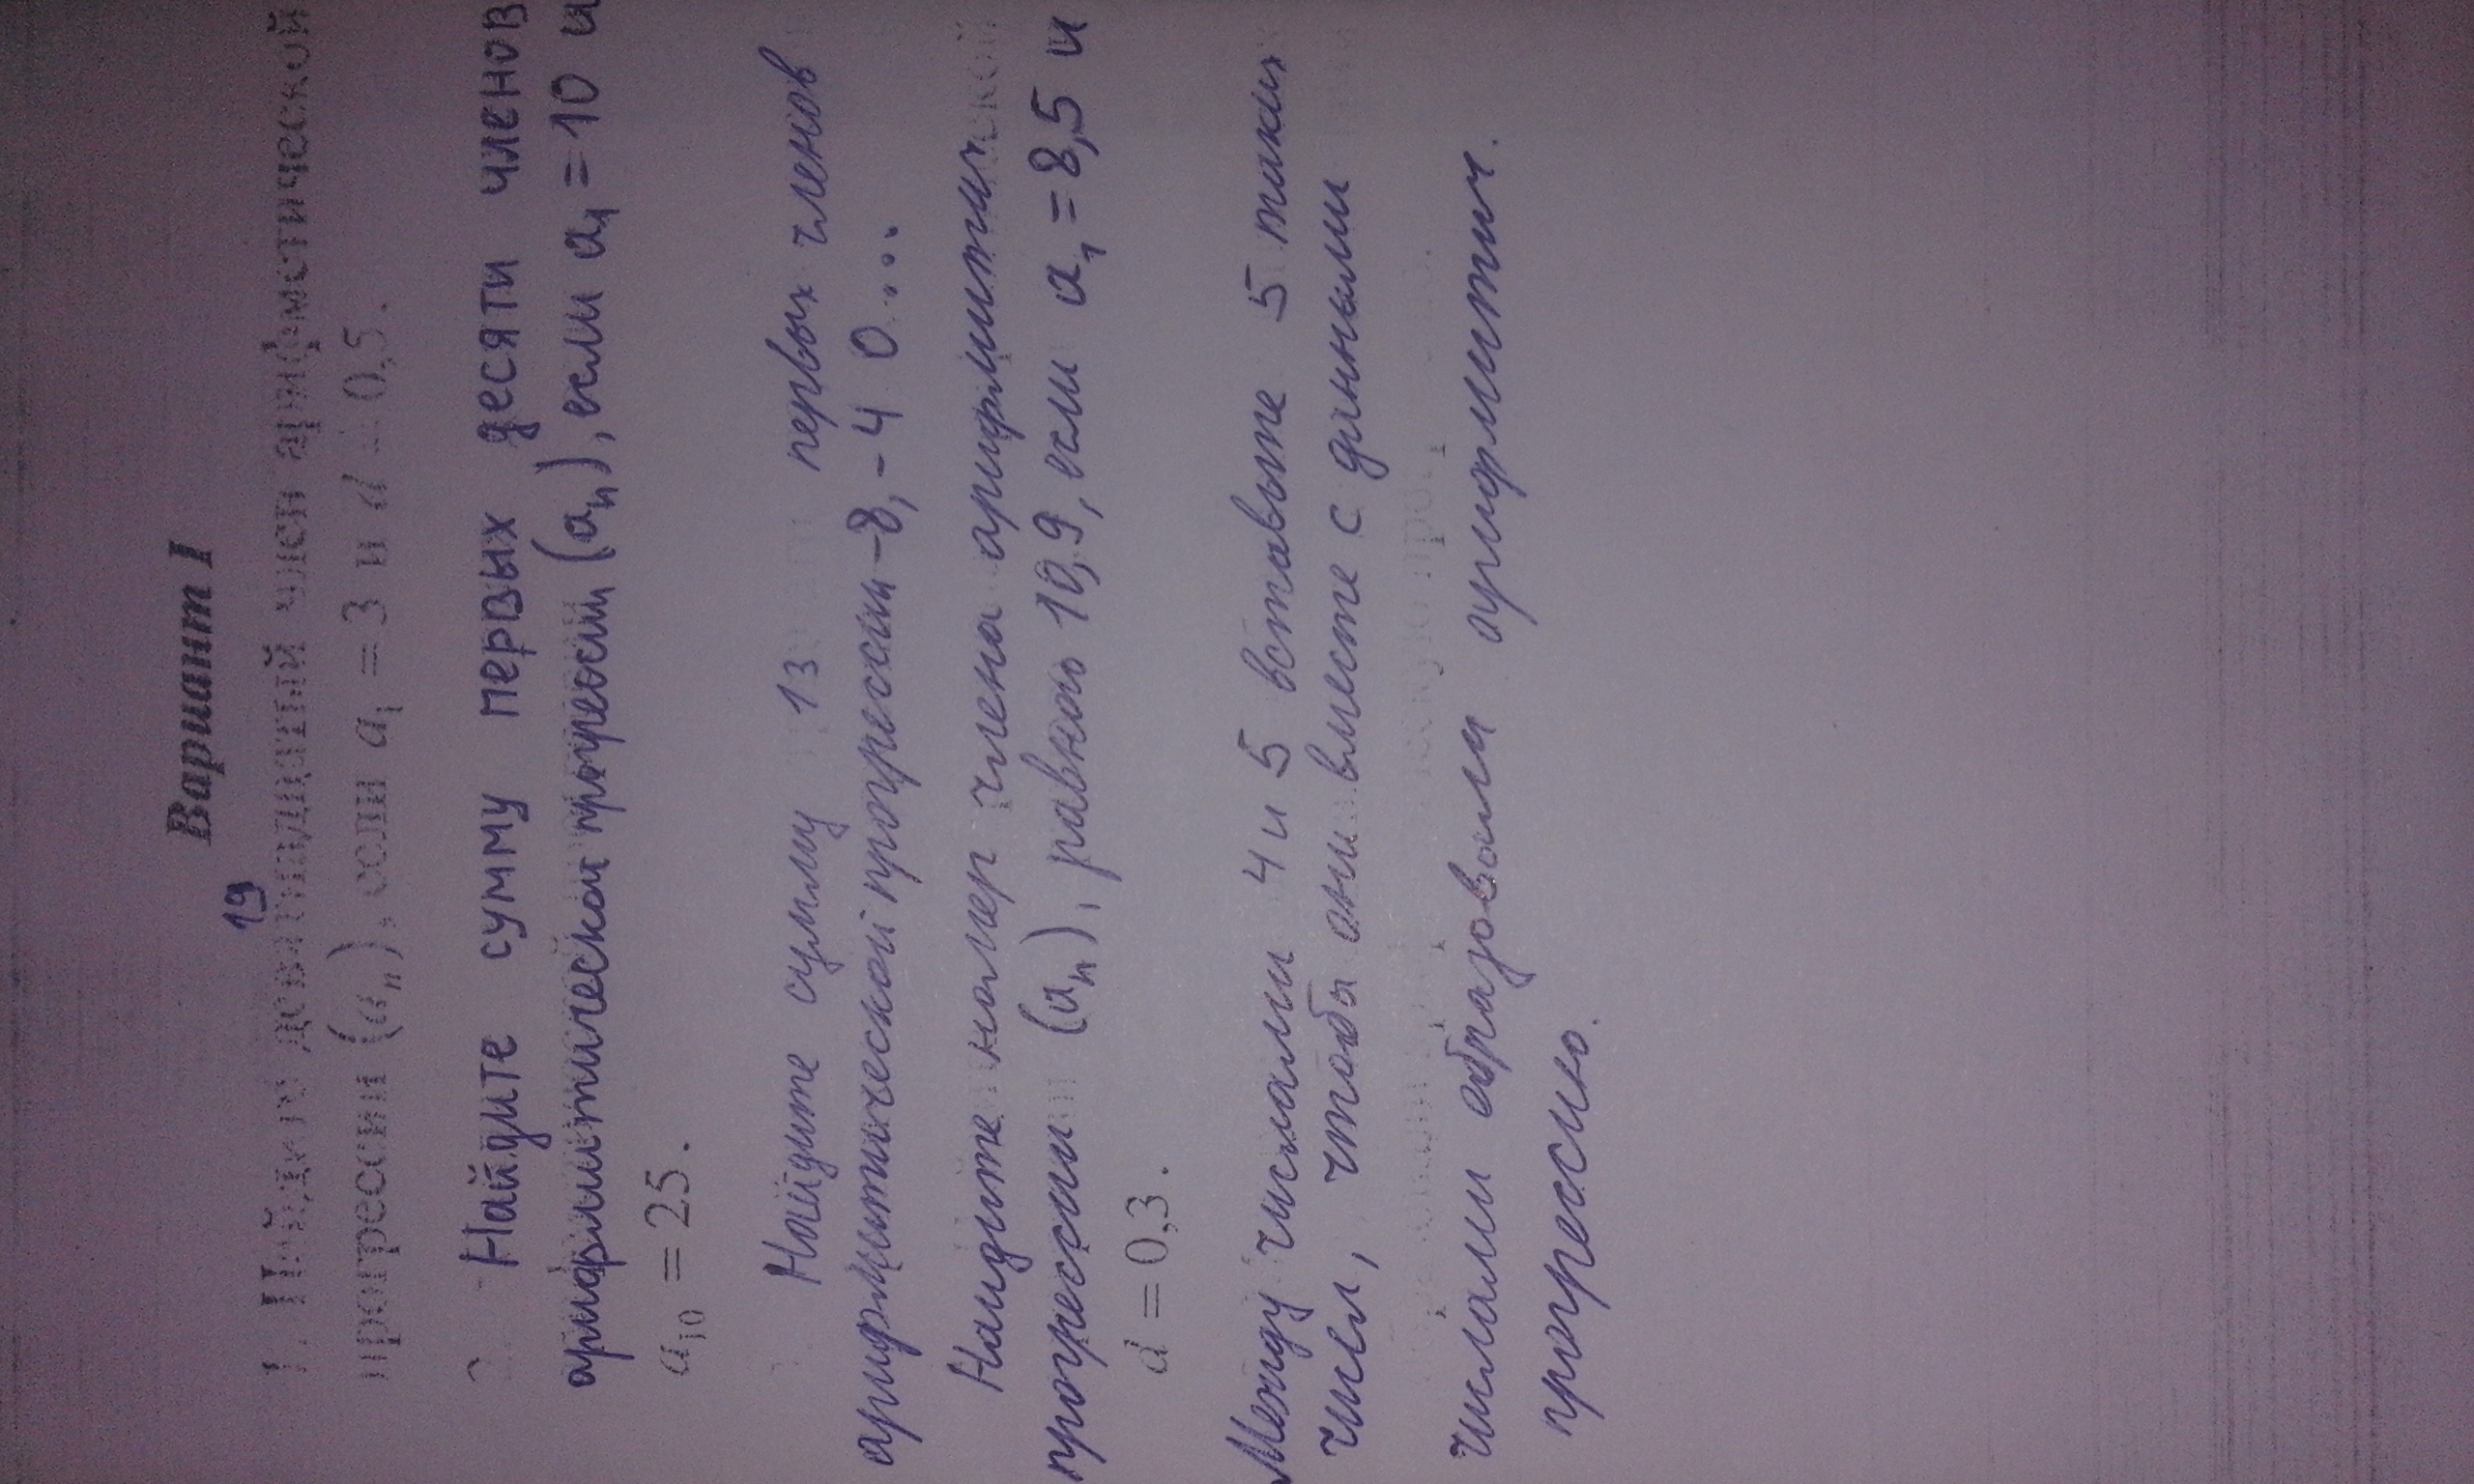 Вариант 1
19
1. Найдите девятнадцатый член арифметической
прогрессии (aₙ), если a₁ = 3 и d = 0,5.
2. Найдите сумму первых десяти членов
арифметической прогрессии (aₙ), если a₁ = 10 и
a₁₀ = 25.
Найдите сумму 13 первых членов
арифметической прогрессии -8, -4 0 ...
Найдите номер члена арифметич.
прогрессии (aₙ), равного 10,9, если a₁ = 8,5 и
d = 0,3.
Между числами 4 и 5 вставьте 5 таких
чисел, чтобы они вместе с данными
числами образовали арифметич.
прогрессию.